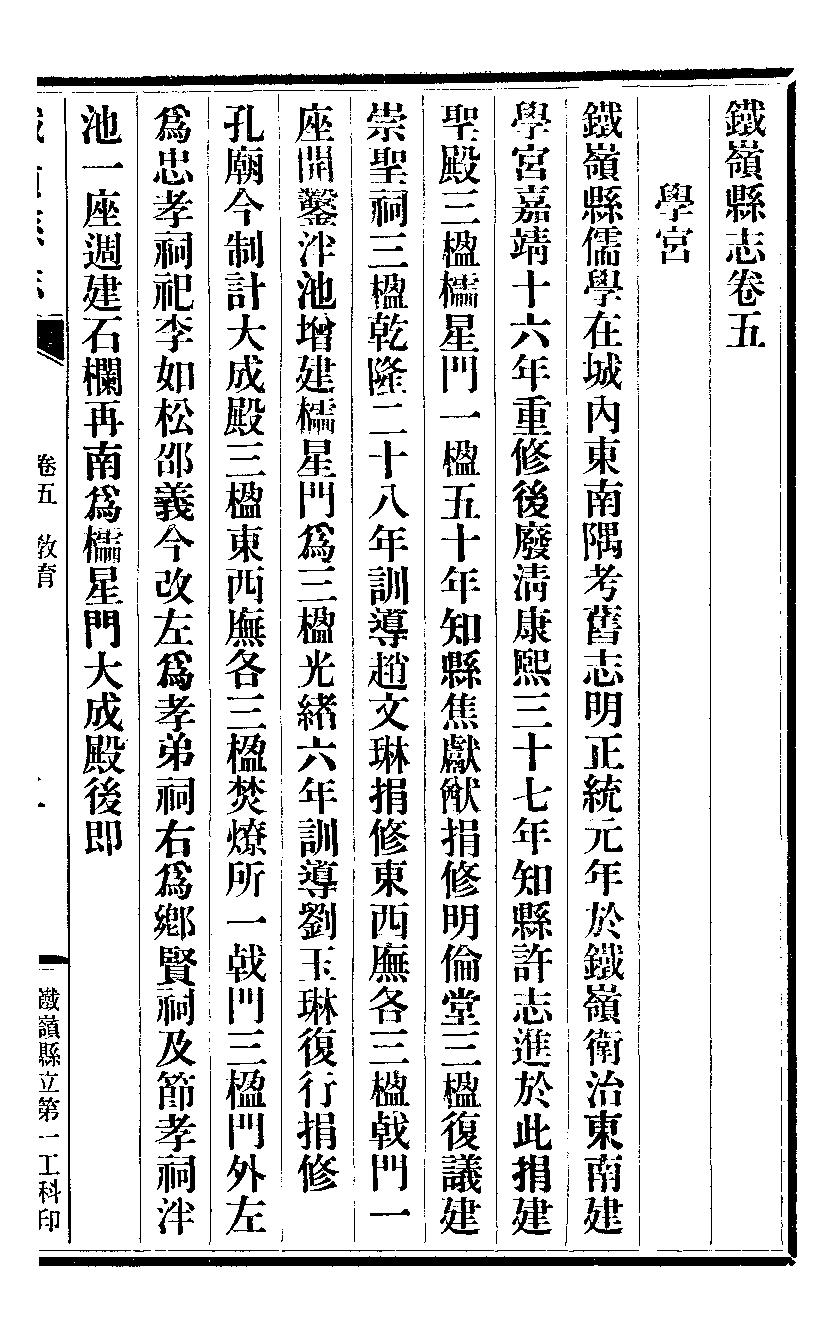 鐵嶺縣志卷五
學宮
鐵嶺縣儒學在城內東南隅考舊志明正統元年於鐵嶺衛治東南建
學宮嘉靖十六年重修後廢清康熙三十七年知縣許志進於此捐建
聖殿三楹櫺星門一楹五十年知縣焦獻猷捐修明倫堂三楹復議建
崇聖祠三楹乾隆二十八年訓導趙文琳捐修東西廡各三楹戟門一
座開鑿泮池增建櫺星門爲三楹光緒六年訓導劉玉琳復行捐修
孔廟今制計大成殿三楹東西廡各三楹焚燎所一戟門三楹門外左
爲忠孝祠祀李如松邵義今改左爲孝弟祠右爲鄉賢祠及節孝祠泮
池一座週建石欄再南爲櫺星門大成殿後即
卷五 教育
鐵嶺縣立第一工科印